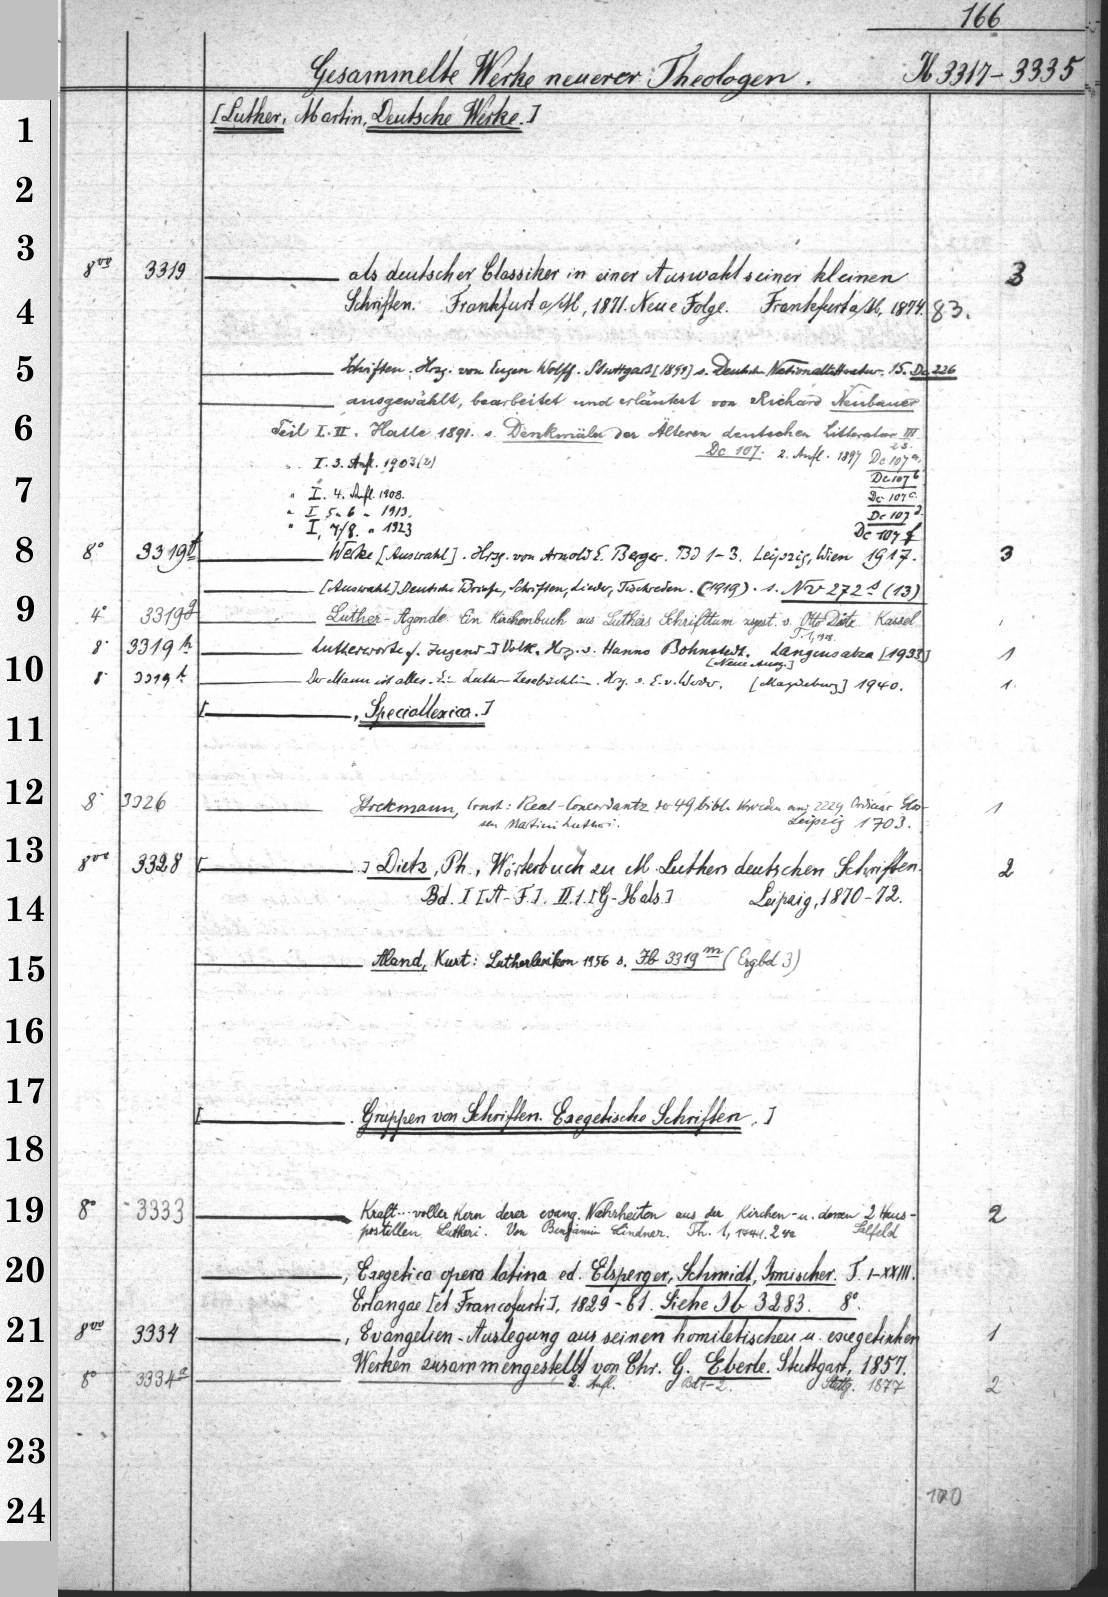 166
Gesammelte Werke neuerer Theologen. Jb 3317-3335
1 [Luther, Martin, Deutsche Werke.]
2
3
8vo 3319 als deutscher Classiker in einer Auswahl seiner kleinen 3
4 Schriften. Frankfurt a/M, 1871. Neue Folge. Frankfurt a/M, 1874. 83.
5 Schriften. Hrsg. von Eugen Wolff. Stuttgart [1891] s. Deutsche Nationallitteratur. 15. Dc 226
ausgewählt, bearbeitet und erläutert von Richard Neubauer
6 Teil I. II. Halle 1891. s. Denkmäler der Älteren deutschen Litteratur III
Dc 107. 2. Aufl. 1897 Dc 107a.
" I. 3. Aufl. 1903 (2) Dc 107b
7 " I. 4. Aufl. 1908. Dc 107c.
" I 5. 6 " 1913. Dc 107d.
" I, 7/8. " 1923 Dc 107f
8 8° 3319f Werke [Auswahl]. Hrsg. von Arnold E. Berger. Bd 1-3. Leipzig, Wien 1917. 3
[Auswahl] Deutsche Briefe, Schriften, Lieder, Tischreden. (1919). s. Nv 272s (13)
9 4° 3319g Luther-Agende. Ein Kirchenbuch aus Luthers Schrifttum v. Otto Dietz Kassel
T. 1,
8° 3319h Lutherworte f. Jugend Volk. Hrsg. v. Hanno Bohnstedt. Langensalza [1933] 1
[Neue Ausg.]
10 8° 3319k Der Mann ist alles. Ein Luther-Lesebüchlein. Hrsg. v. E. v. [Magdeburg] 1940. 1.
11 [, Speciallexica.]
12 8° 3326 Stockmann, Ernst: Real-Concordantz 49 bibl. 2229 Ordinar Glos- 1
sen Martini Lutheri. Leipzig 1703.
13 8vo 3328 [] Dietz, Ph., Wörterbuch zu M. Luthers deutschen Schriften. 2
14 Bd. I [A-F]. II.1. [G-Hals] Leipzig, 1870-72.
15 Aland, Kurt: Lutherlexikon 1956 s. Jb 3319m (Ergbd 3)
16
17 [. Gruppen von Schriften. Exegetische Schriften.]
18
19 8° 3333 Kraft...voller Kern derer evang. Wahrheiten aus der Kirchen- u. dessen 2 Haus- 2
postillen Lutheri. Von Benjamin Lindner. Th. 1, Salfeld
20 , Exegetica opera latina ed. Elsperger, Schmidt, Irmischer. T. I-XXIII.
Erlangae [et Francofurti], 1829-61. Siehe Jb 3283. 8°.
21 8vo 3334 , Evangelien-Auslegung aus seinen homiletischen u. exegetischen 1
Werken zusammengestellt von Chr. G. Eberle. Stuttgart, 1857.
22 8° 3334a 2. Aufl. Bd 1-2. Stuttg. 1877 2
23
24